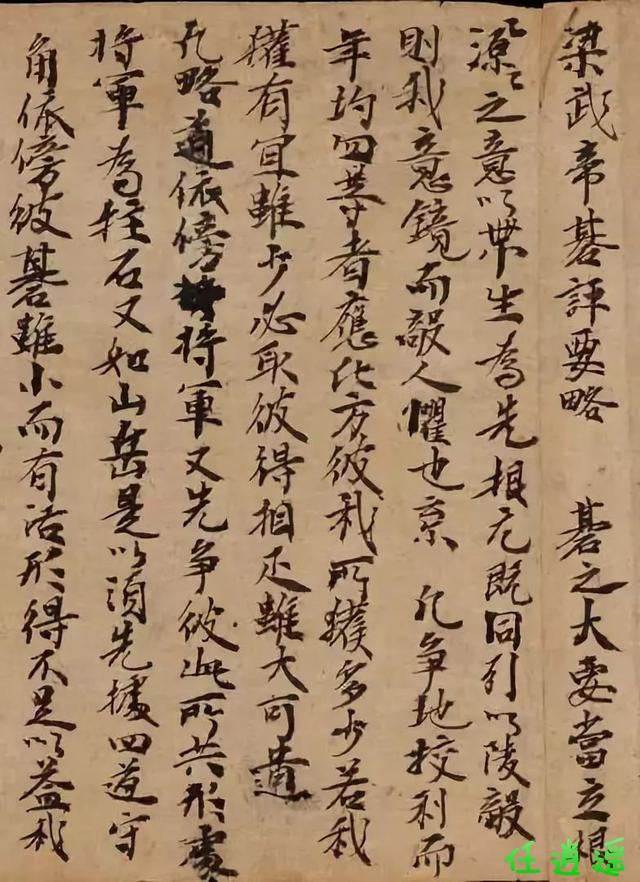 梁武帝碁評要略 碁之大要當立根
源〻之意以帶生為先根元既同引以陵敵
則我意鏡而敵人懼也案 凡爭地校利而
年均四等者應比方彼我所獲多少若我
獲有宜雖少必取彼得相疋雖大可遺
凡略道依傍將軍又先爭彼此所共形處
將軍為柱石又如山岳是以須先據四道守
角依傍彼碁雖小而有活形得不足以益我
任逍遥